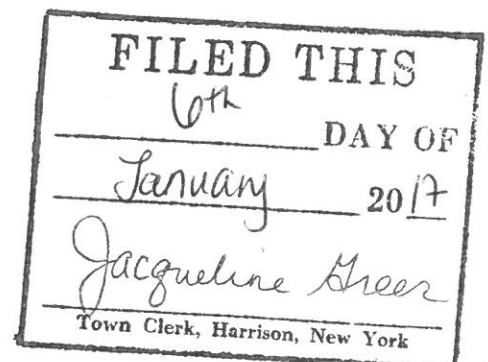 FILED THIS
6th
DAY OF
January 2017
Jacqueline Greer
Town Clerk, Harrison, New York